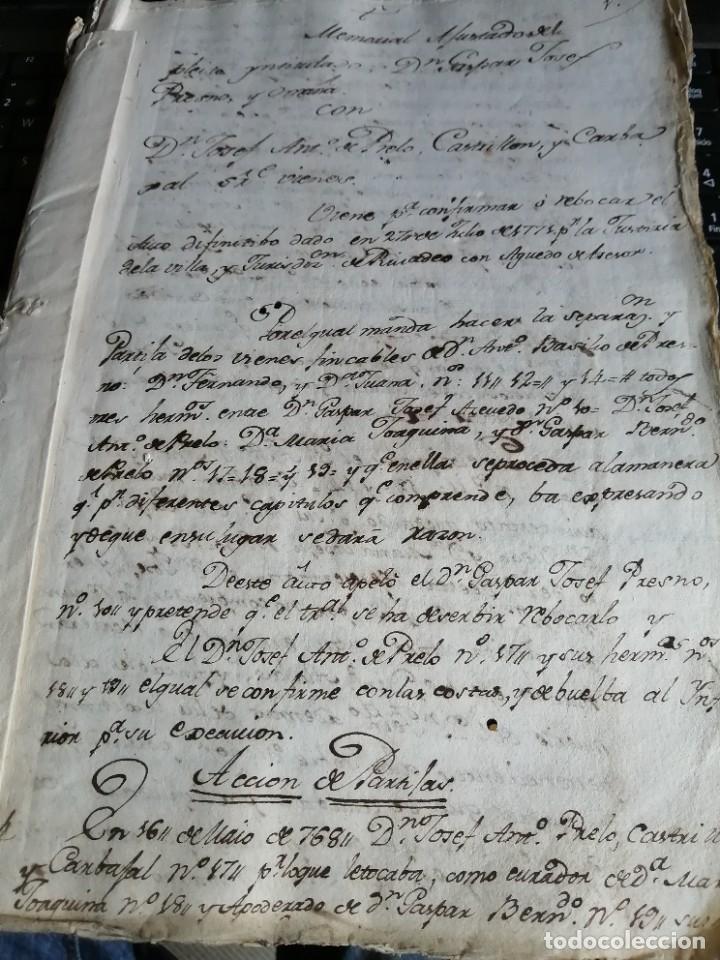 Memorial Ajustado del
pleito yntitulado. Dn. Gaspar Josef
Presno, y Omaña
con
Dn. Josef Anto. de Prelo, Castrillon, y Carba
xal Sre. vienes.
Viene pa. confirmar ô rebocar el
Auto difinitibo dado en 27 de Julio de 1771 pr. la Justicia
dela villa, y Jurisdon. de Rivadeo con Aquedo de Asesor.
Porelqual manda hacer la separazn. y
Partija delos vienes fincables de Dn. Anto. Basilio de Pres-
no: Dn. Fernando, y Da. Juana. nos. 11,, 12=,, y 14=# todos
tres hermos. entre Dn. Gaspar Josef Acevedo No. 10= Dn. Josef
Anto. de Prelo: Da. Maria Joaquina, y Dn. Gaspar Berndo.
de Prelo nos. 17= 18= y 19= y qe. enella seproceda alamanera
qe. pr. diferentes capitulos qe. comprende, ba expresando
ydeque ensulugar sedará razon.
Deeste auto apeló el dn. Gaspar Josef Presno,
no. 10,, ypretende qe. el tral. se ha deserbir rebocarlo y
El Dno. Josef Anto. de Prelo no. 17,, y sus hermas. nos.
18,, y 19,, elqual se confirme conlas costas, y debuelba al Ynfe
rior pa. su execucion.
Accion de Partijas.
En 16,, de Maio de 768,, Dno. Josef Anto. Prelo, Castri
y Carbajal no. 17,, pr. loque letocaba, como curador de da. Mar
Joaquina no. 18,, y Apoderado de dn. Gaspar Berndo. No. 19,, su
todocoleccion